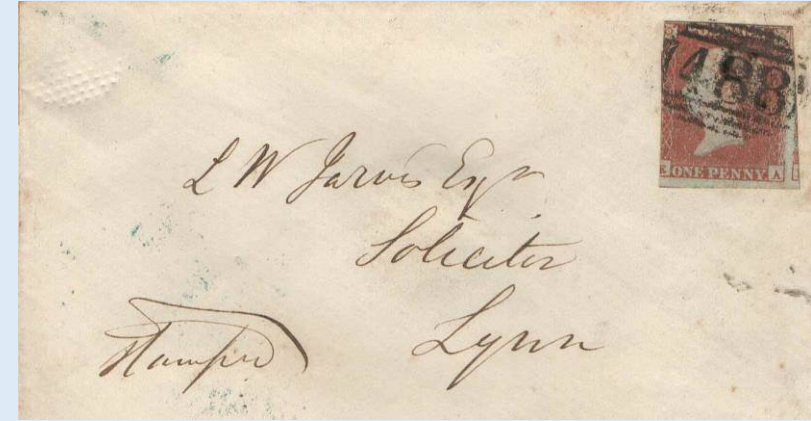 488
E ONE PENNY A
L W Jarvis Esqr
Solicitor
Lynn
Stamped